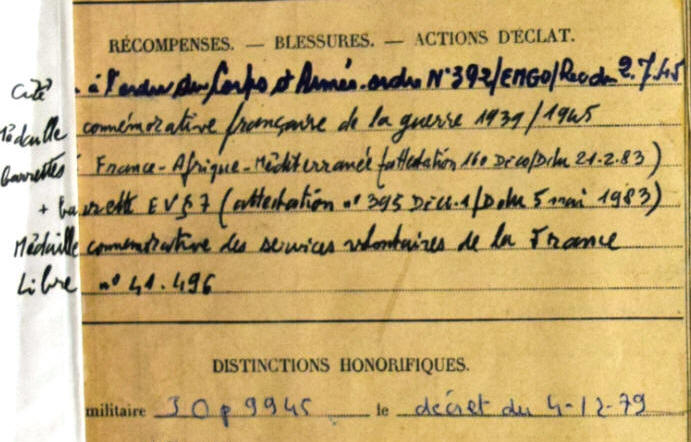 RÉCOMPENSES. — BLESSURES. — ACTIONS D'ÉCLAT.
Cité à l'ordre du Corps d'Armée. ordre N° 392/EMGO/Rec du 2.7.45
Médaille commémorative française de la guerre 1939/1945
barrettes France - Afrique - Méditerranée (attestation 160 21-2-83)
+ barrette (attestation n° 395 5 mai 1983)
Médaille commémorative des services volontaires de la France
Libre n° 41.496
DISTINCTIONS HONORIFIQUES.
militaire J O p 9945 le décret du 4-12-79